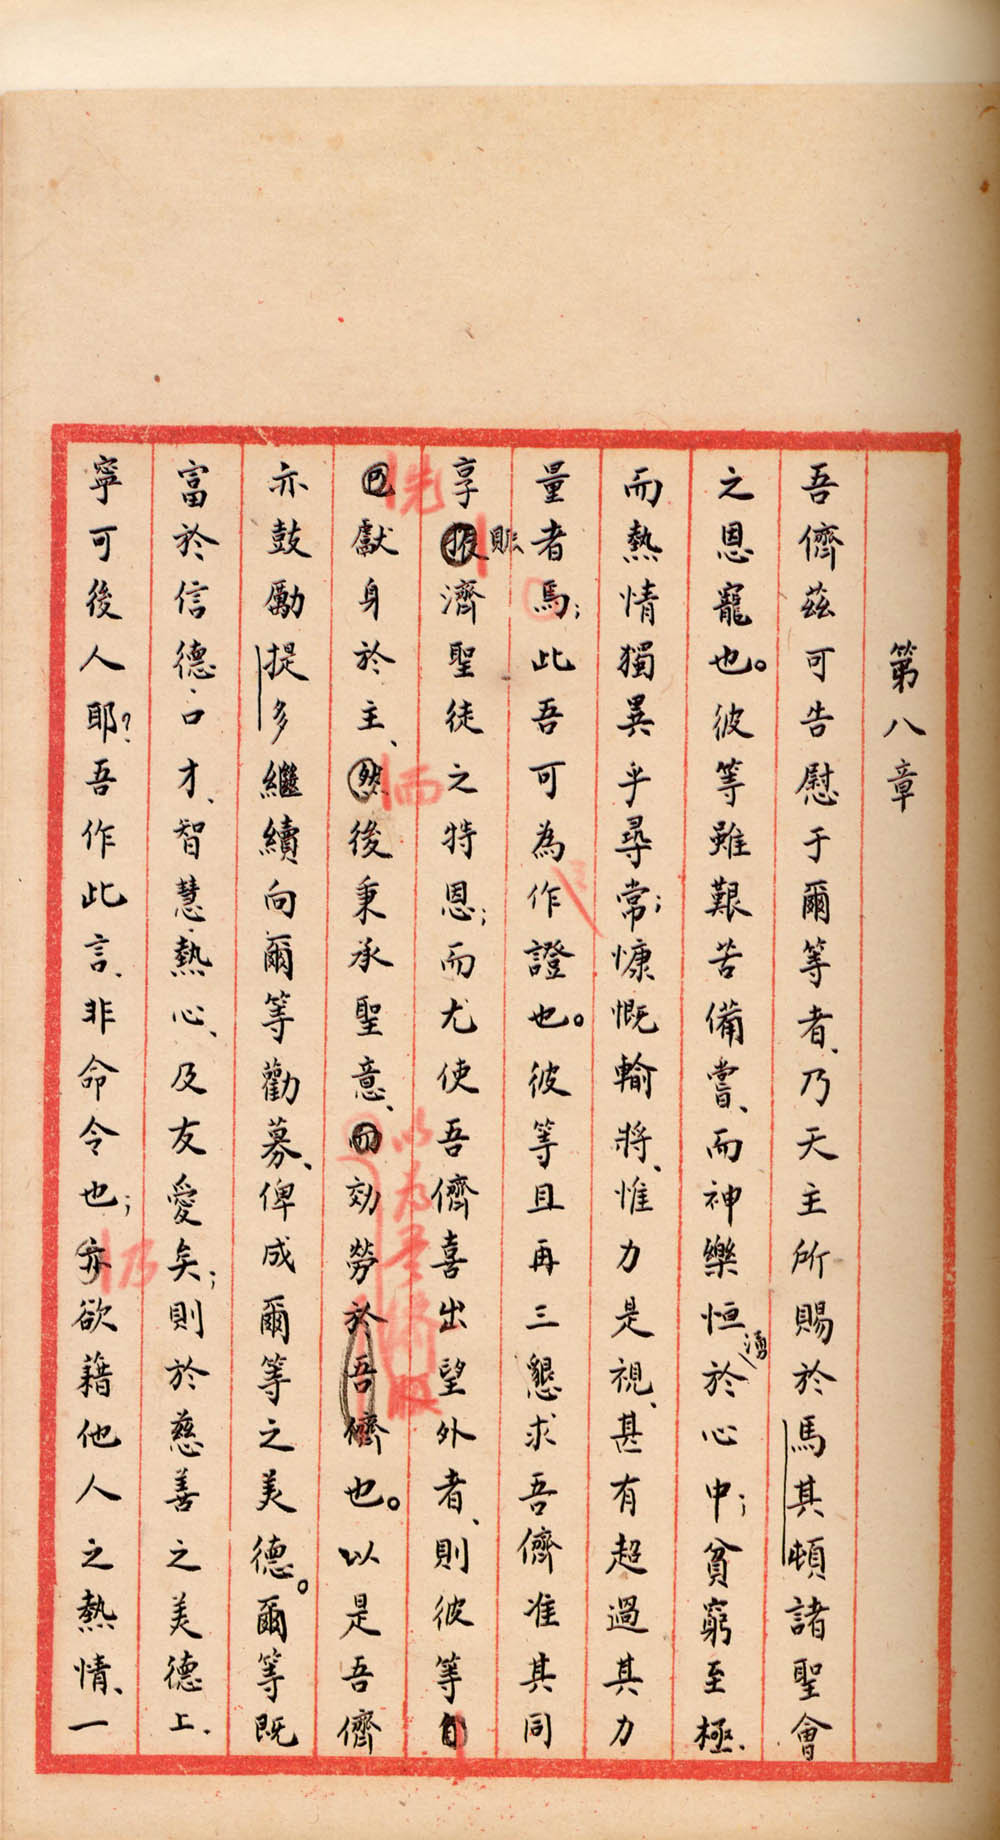 第八章
吾儕茲可告慰于爾等者、乃天主所賜於馬其頓諸聖會
之恩寵也。彼等雖艱苦備嘗、而神樂恒湧於心中；貧窮至極、
而熱情獨異乎尋常；慷慨輸將、惟力是視、甚有超過其力
量者焉；此吾可為作證也。彼等且再三懇求吾儕准其同
享賑濟聖徒之特恩；而尤使吾儕喜出望外者、則彼等自
先已獻身於主、而然後秉承聖意、而効勞於吾儕也。以是吾儕
亦鼓勵提多繼續向爾等勸募、俾成爾等之美德。爾等既
富於信德、口才、智慧、熱心、及友愛矣；則於慈善之美德上、
寧可後人耶？吾作此言、非命令也；亦乃欲藉他人之熱情、一